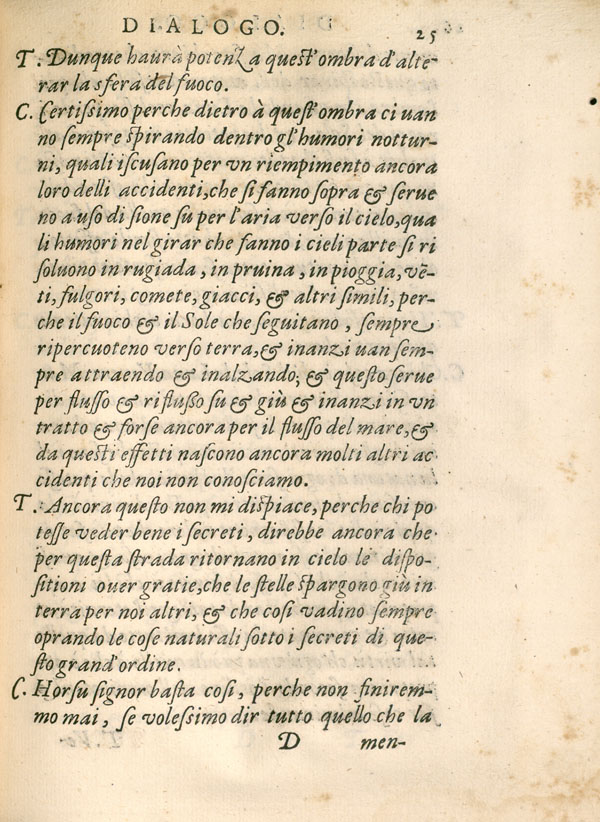 DIALOGO. 25
T. Dunque haurà potenza quest'ombra d'alte-
rar la sfera del fuoco.
C. Certissimo perche dietro à quest'ombra ci uan
no sempre spirando dentro gl'humori nottur-
ni, quali iscusano per vn riempimento ancora
loro delli accidenti, che si fanno sopra & serue
no a uso di sione su per l'aria verso il cielo, qua
li humori nel girar che fanno i cieli parte si ri
soluono in rugiada, in pruina, in pioggia, vē
ti, fulgori, comete, giacci, & altri simili, per-
che il fuoco & il Sole che seguitano, sempre
ripercuoteno verso terra, & inanzi uan sem-
pre attraendo & inalzando; & questo serue
per flusso & riflusso su & giù & inanzi in vn
tratto & forse ancora per il flusso del mare, &
da questi effetti nascono ancora molti altri ac
cidenti che noi non conosciamo.
T. Ancora questo non mi dispiace, perche chi po
tesse veder bene i secreti, direbbe ancora che
per questa strada ritornano in cielo le dispo-
sitioni ouer gratie, che le stelle spargono giù in
terra per noi altri, & che cosi vadino sempre
oprando le cose naturali sotto i secreti di que-
sto grand'ordine.
C. Horsù signor basta cosi, perche non finirem-
mo mai, se volessimo dir tutto quello che la
D men-